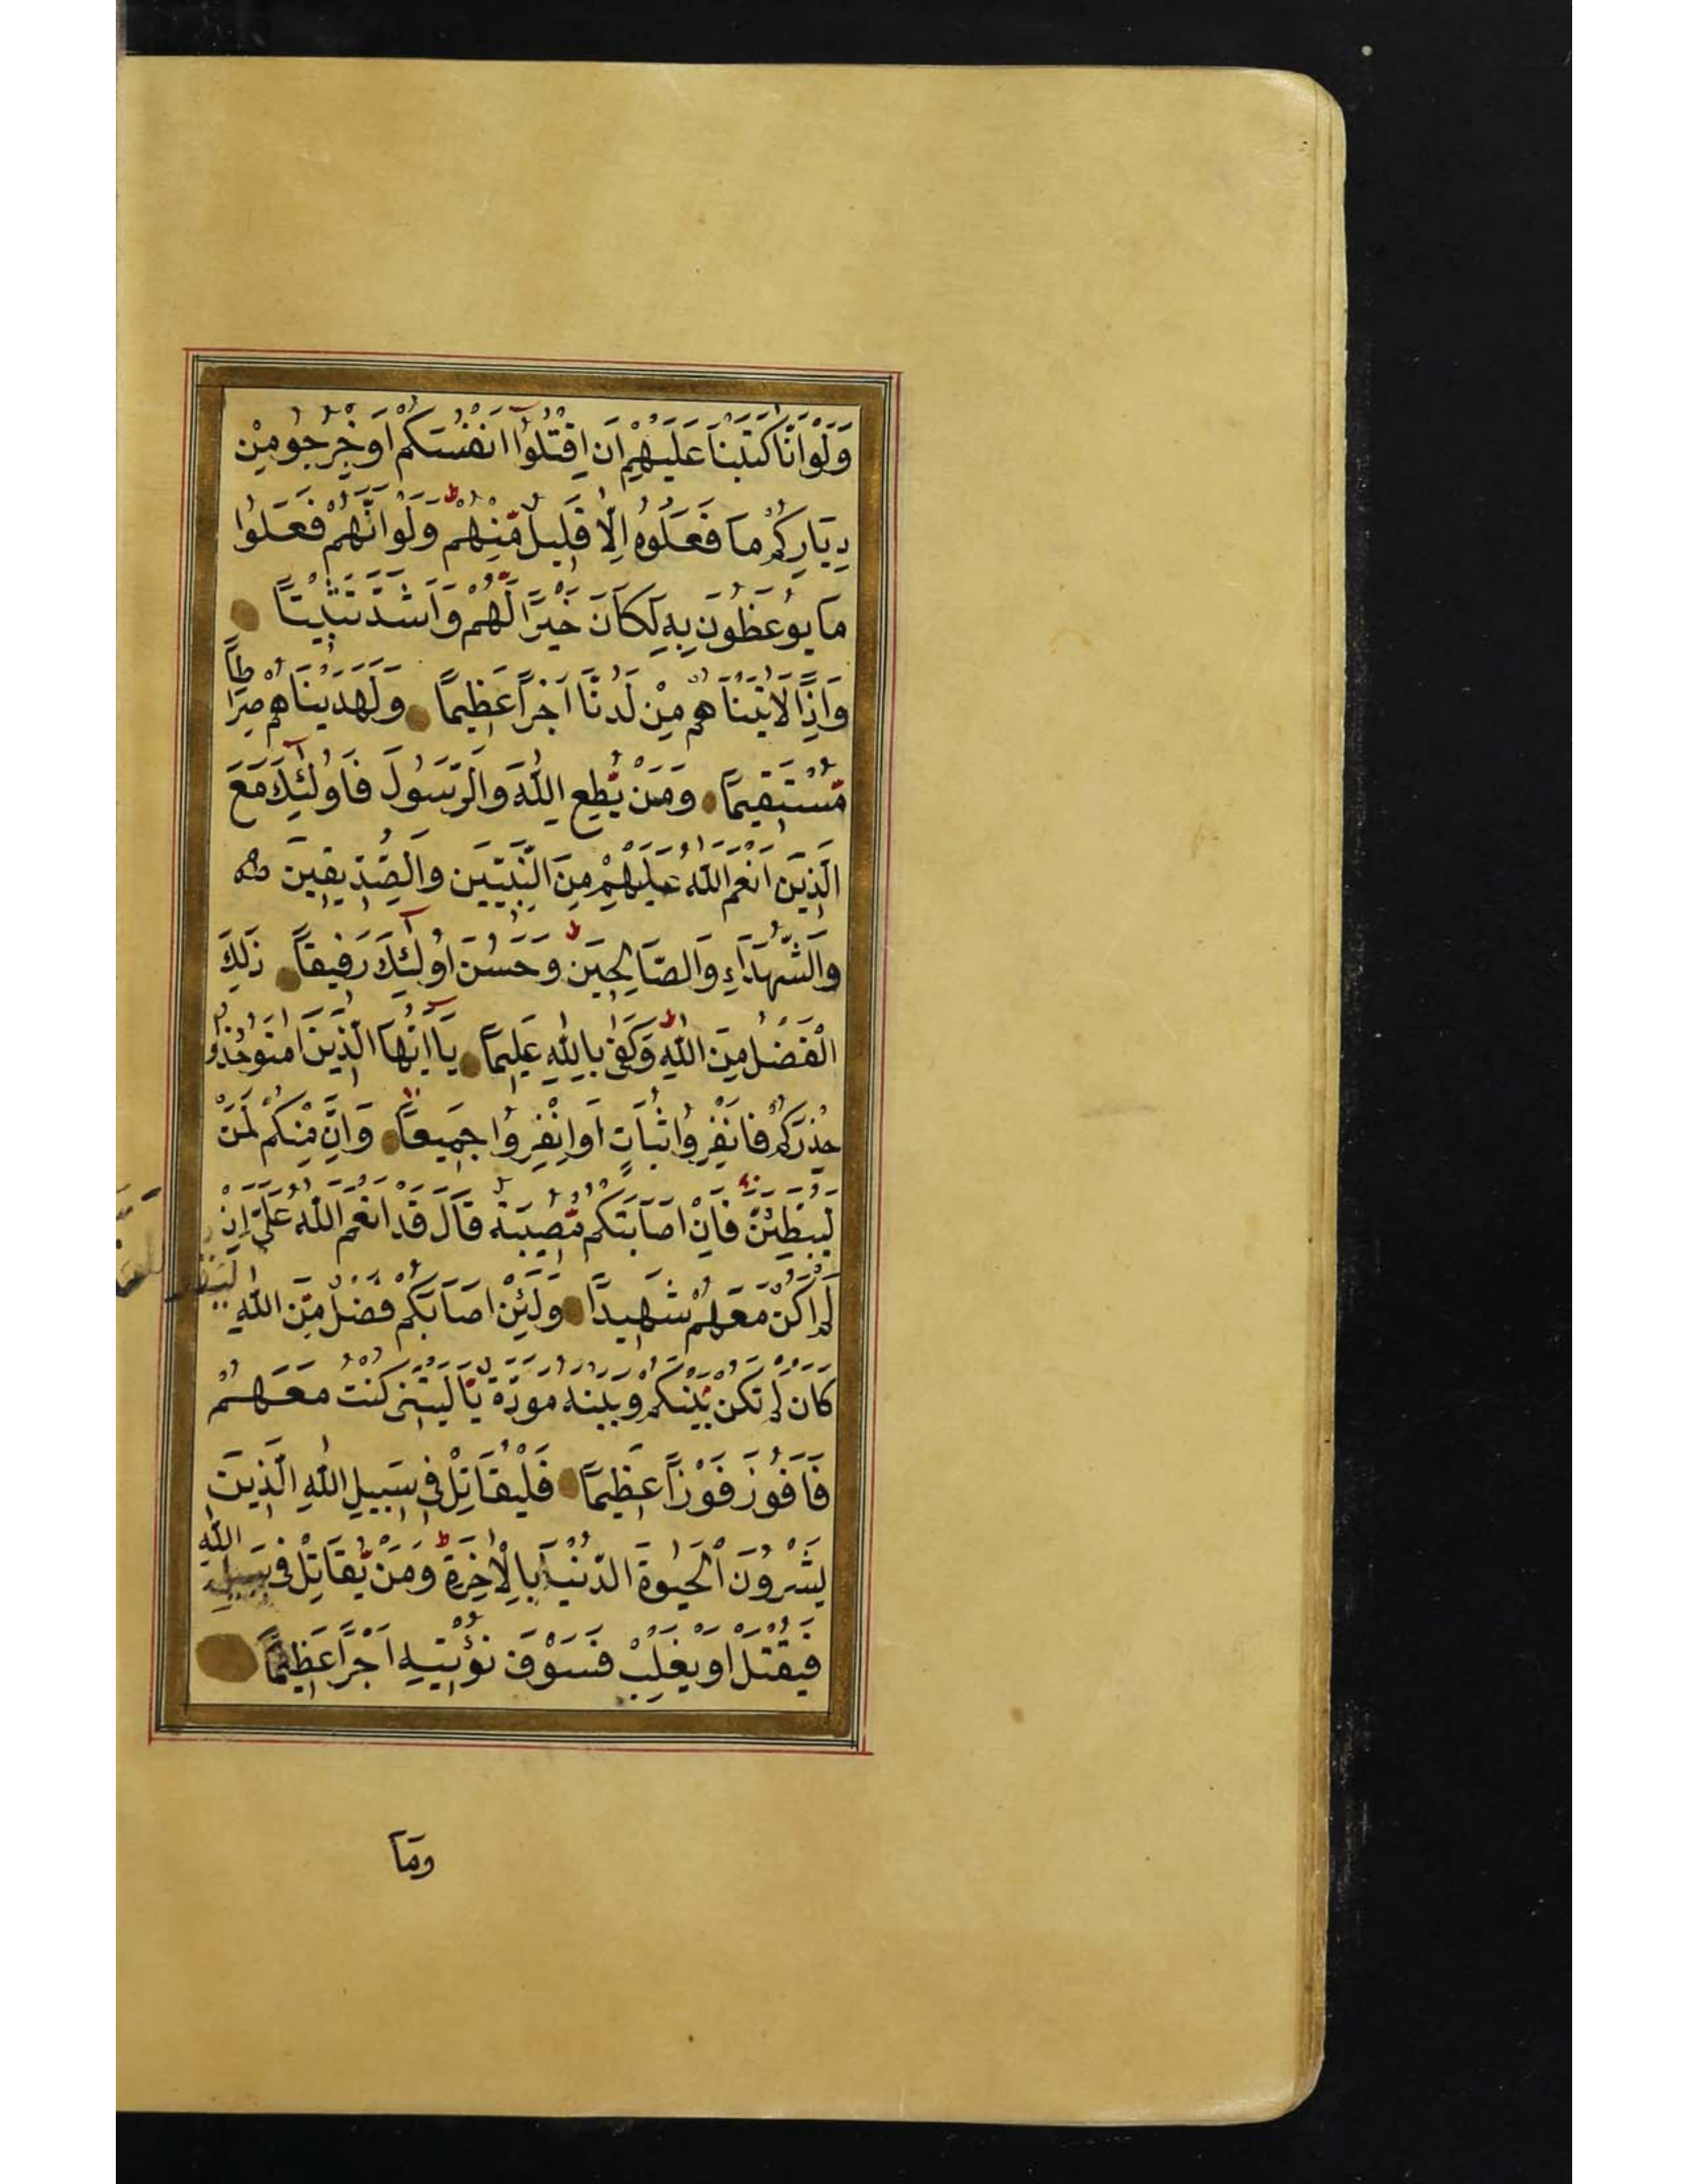 وَلَوْ اَنَّا كَتَبْنَا عَلَيْهِمْ اَنِ اقْتُلُوا اَنْفُسَكُمْ اَوِ خْرُجُو مِنْ
دِيَارِكُمْ مَا فَعَلُوهُ اِلَّا قَلِيلٌ مِّنْهُمْ ط وَلَوْ اَنَّهُمْ فَعَلُوا
مَا يُوعَظُونَ بِهِ لَكَانَ خَيْرًا لَّهُمْ وَاَشَدَّ تَثْبِيتًا
وَاِذًا لَاٰتَيْنَاهُمْ مِنْ لَدُنَّا اَجْرًا عَظِيمًا وَلَهَدَيْنَاهُمْ صِرَاطًا
مُّسْتَقِيمًا وَمَنْ يُّطِعِ اللّٰهَ وَالرَّسُولَ فَاُولٰئِكَ مَعَ
الَّذِينَ اَنْعَمَ اللّٰهُ عَلَيْهِمْ مِنَ النَّبِيّينَ وَالصِّدِّيقِينَ
وَالشُّهَدَاءِ وَالصَّالِحِينَ ط وَحَسُنَ اُولٰئِكَ رَفِيقًا ذٰلِكَ
الْفَضْلُ مِنَ اللّٰهِ ط وَكَفٰى بِاللّٰهِ عَلِيمًا يَا اَيُّهَا الَّذِينَ اٰمَنُو خُذُوا
حِذْرَكُمْ فَانْفِرُوا ثُبَاتٍ اَوِ انْفِرُوا جَمِيعًا وَاِنَّ مِنْكُمْ لَمَنْ
لَيُبَطِّئَنَّ فَاِنْ اَصَابَتْكُمْ مُّصِيبَةٌ قَالَ قَدْ اَنْعَمَ اللّٰهُ عَلَىَّ اِذْ
لَمْ اَكُنْ مَّعَهُمْ شَهِيدًا وَلَئِنْ اَصَابَكُمْ فَضْلٌ مِّنَ اللّٰهِ
كَاَنْ لَمْ تَكُنْ بَيْنَكُمْ وَبَيْنَهُ مَوَدَّةٌ يَّا لَيْتَنِى كُنْتُ مَعَهُمْ
فَاَفُوزَ فَوْزًا عَظِيمًا فَلْيُقَاتِلْ فِى سَبِيلِ اللّٰهِ الَّذِينَ
يَشْرُونَ الْحَيٰوةَ الدُّنْيَا بِالْاٰخِرَةِ ط وَمَنْ يُّقَاتِلْ فِى سَبِيلِ اللّٰهِ
فَيُقْتَلْ اَوْ يَغْلِبْ فَسَوْفَ نُؤْتِيهِ اَجْرًا عَظِيمًا
وَمَا